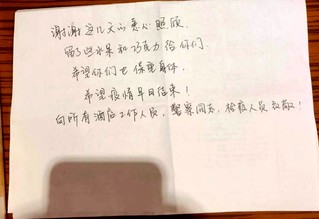 谢谢这几天的悉心照顾
留了些水果和巧克力给你们
希望你们也保重身体
希望疫情早日结束！
向所有酒店工作人员，警察同志，检疫人员致敬！